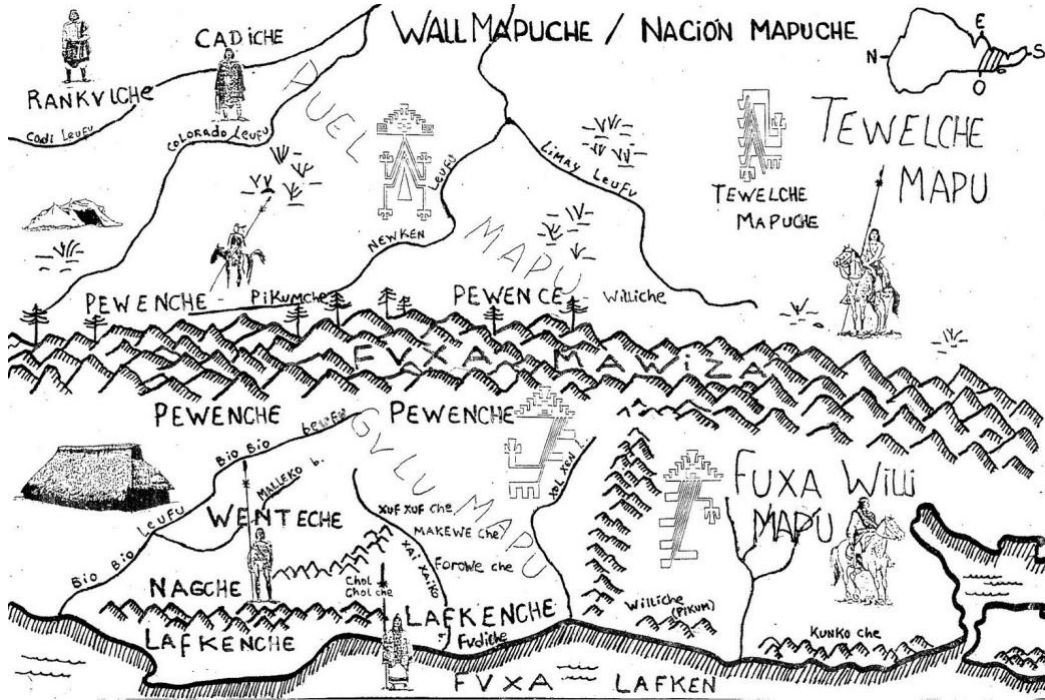 WALL MAPUCHE / NACIÓN MAPUCHE
E
N
S
O
CADICHE
RANKVLCHE
Cadi Leufu
COLORADO LEUFU
PUEL
MAPU
NEWKEN
LEUFU
LIMAY LEUFU
TEWELCHE
MAPUCHE
TEWELCHE
MAPU
PEWENCHE - PIKUMCHE
PEWENCE - WILLICHE
FVXA MAWIZA
PEWENCHE
PEWENCHE
GVLU MAPU
BIO BIO
LEUFU
BIO BIO
MALLEKO
WENTECHE
NAGCHE
LAFKENCHE
XUF XUF che
MAKEWE che
FOROWE che
XAI XAIKO
CHOL
CHOL che
LAFKENCHE
Fvdiche
XOL XEN
FUXA WILLI
MAPU
Williche
(PIKUM)
KUNKO che
FVXA LAFKEN